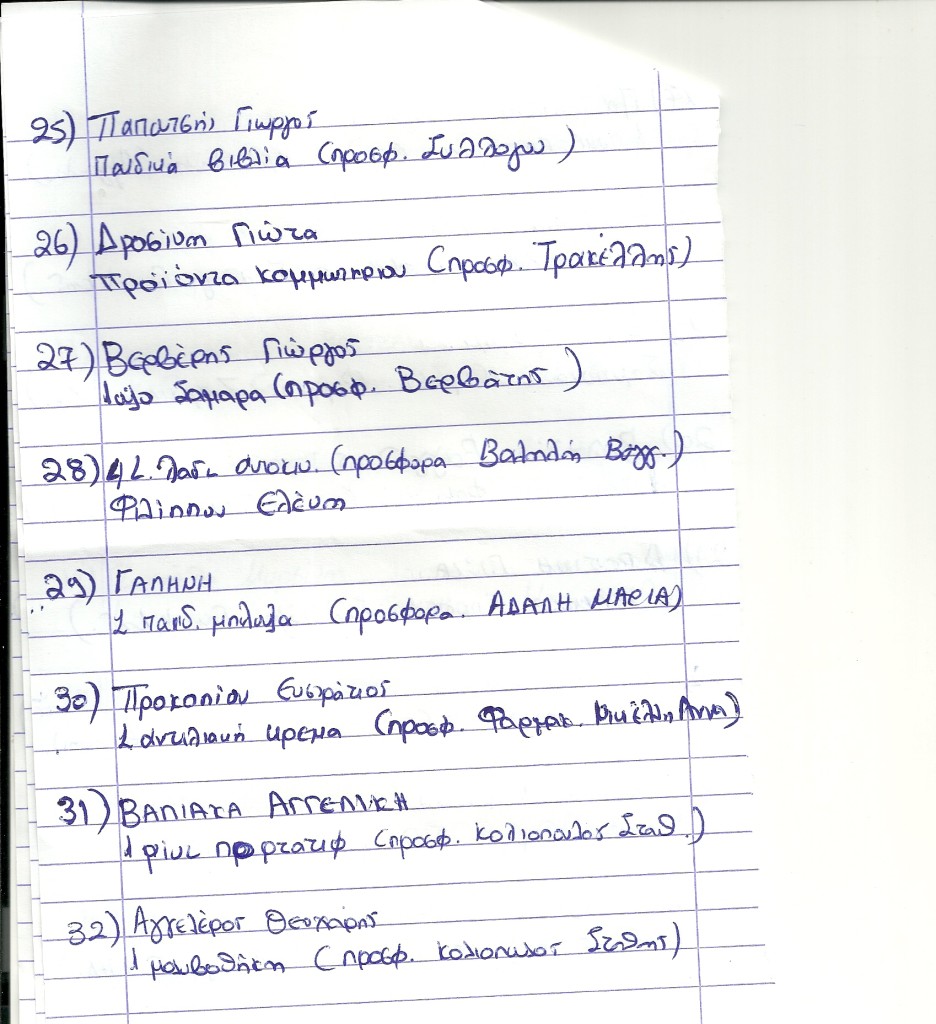 25) Παπατσής Γιώργος
Παιδικά βιβλία (προσφ. Συλλόγου)
26) Δροσίνη Γιώτα
Προϊόντα κομμωτηριου (προσφ. Τρακέλλης)
27) Βερβέρης Γιώργος
(προσφ. Βερβάτης)
28) 4 L. λαδι (προσφορα Βαγγ.)
Φιλίππου Ελένη
29) ΓΑΛΗΝΗ
1 παιδ. μπλουζα (προσφορα. ΑΔΑΛΗ ΜΑΡΙΑ)
30) Προκοπίου Ευστράτιος
1 αντιλιακή κρεμα (προσφ. Φαρμακ. Άννα)
31) ΒΑΛΙΑΚΑ ΑΓΓΕΛΙΚΗ
1 πορτατιφ (προσφ. Κολιοπουλος Σταθ.)
32) Αγγελέρος Θεοχάρης
1 (προσφ. Κολιοπουλος Σταθης)